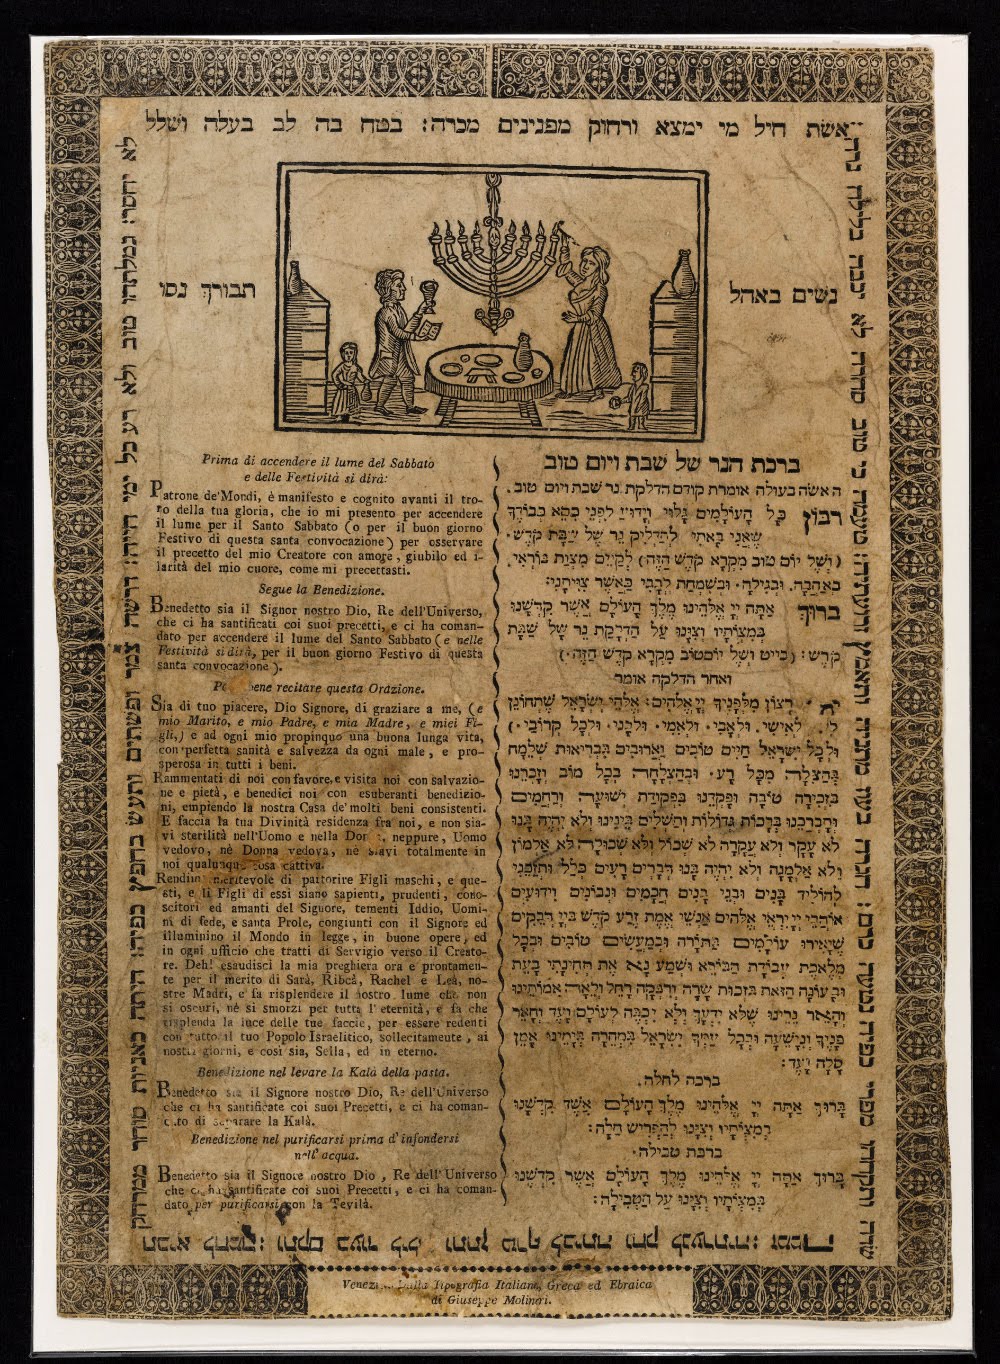 אשת חיל מי ימצא ורחוק מפנינים מכרה: בטח בה לב בעלה ושלל
לא יחסר: גמלתהו טוב ולא רע כל ימי חייה: דרשה צמר ופשתים ותעש בחפץ כפיה: היתה כאניות סוחר ממרחק
תביא לחמה: ותקם בעוד לילה ותתן טרף לביתה וחק לנערתיה: זממה
שדה ותקחהו מפרי כפיה נטעה כרם: חגרה בעוז מתניה ותאמץ זרועתיה: טעמה כי טוב סחרה לא יכבה בלילה נרה
נשים באהל
תבורך נסו
Prima di accendere il lume del Sabbato
e delle Festività si dirà:
Patrone de'Mondi, è manifesto e cognito avanti il tro-
no della tua gloria, che io mi presento per accendere
il lume per il Santo Sabbato (o per il buon giorno
Festivo di questa santa convocazione) per osservare
il precetto del mio Creatore con amore, giubilo ed i-
larità del mio cuore, come mi precettasti.
Segue la Benedizione.
Benedetto sia il Signor nostro Dio, Re dell'Universo,
che ci ha santificati coi suoi precetti, e ci ha coman-
dato per accendere il lume del Santo Sabbato (e nelle
Festività si dirà, per il buon giorno Festivo di questa
santa convocazione).
bene recitare questa Orazione.
Sia di tuo piacere, Dio Signore, di graziare a me, (e
mio Marito, e mio Padre, e mia Madre, e miei Fi-
gli,) e ad ogni mio propinquo una buona lunga vita,
con perfetta sanità e salvezza da ogni male, e pro-
sperosa in tutti i beni.
Rammentati di noi con favore, e visita noi con salvazio-
ne e pietà, e benedici noi con esuberanti benedizio-
ni, empiendo la nostra Casa de'molti beni consistenti.
E faccia la tua Divinità residenza fra noi, e non sia-
vi sterilità nell'Uomo e nella Donna, neppure, Uomo
vedovo, nè Donna vedova, nè siavi totalmente in
noi qualunque cosa cattiva.
Rendimi meritevole di partorire Figli maschi, e que-
sti, e li Figli di essi siano sapienti, prudenti, cono-
scitori ed amanti del Signore, tementi Iddio, Uomi-
ni di fede, e santa Prole, congiunti con il Signore ed
illuminino il Mondo in legge, in buone opere, ed
in ogni ufficio che tratti di Servigio verso il Creato-
re. Deh! esaudisci la mia preghiera ora e prontamen-
te per il merito di Sarà, Ribcà, Rachel e Leà, no-
stre Madri, e fa risplendere il nostro lume che non
si oscuri, nè si smorzi per tutta l'eternità, e fa che
risplenda la luce delle tue faccie, per essere redenti
con tutto il tuo Popolo Israelitico, sollecitamente, ai
nostri giorni, e così sia, Sella, ed in eterno.
Benedizione nel levare la Kalà della pasta.
Benedetto sia il Signore nostro Dio, Re dell'Universo
che ci ha santificate coi suoi Precetti, e ci ha coman-
dato di separare la Kalà.
Benedizione nel purificarsi prima d'infondersi
nell'acqua.
Benedetto sia il Signore nostro Dio, Re dell'Universo
che ci ha santificate coi suoi Precetti, e ci ha coman-
dato per purificarsi con la Tevilà.
ברכת הנר של שבת ויום טוב
האשה בעולה אומרת קודם הדלקת נר שבת ויום טוב.
רבון כל העולמים גלוי וידוע לפני כסא כבודך
שאני באתי להדליק נר של שבת קדש.
(ושל יום טוב מקרא קדש הזה) לקיים מצות בוראי.
באהבה. ובגילה. ובשמחת לבבי כאשר צויתני:
ברוך אתה יי אלהינו מלך העולם אשר קדשנו
במצותיו וצונו על הדלקת נר של שבת
קדש: (ביו״ט ושל יום טוב מקרא קדש הזה.)
ואחר הדלקה אומר
רצון מלפניך יי אלהים: אלהי ישראל שתחונן
לי. לאישי. ולאבי. ולאמי. ולבני. ולכל קרובי.)
ולכל ישראל חיים טובים וארוכים בבריאות שלמה
בהצלה מכל רע. ובהצלחה בכל טוב וזכרנו
בזכירה טובה ופקדנו בפקודת ישועה ורחמים
ותברכנו ברכות גדולות והשלים בתינו ולא יהיה בנו
לא עקר ולא עקרה לא שכול ולא שכולה לא אלמון
ולא אלמנה ולא יהיה בנו דברים רעים כלל ותזכני
להוליד בנים ובני בנים חכמים ונבונים וידועים
אוהבי יי יראי אלהים אנשי אמת זרע קדש ביי דבקים
שיאירו עולמים בתורה ובמעשים טובים ובכל
מלאכת עבודת הבורא ושמע נא את תחינתי בעת
ובעונה הזאת בזכות שרה ורבקה רחל ולאה אמותינו
והאר נרינו שלא ידעך ולא יכבה לעולם ועד והאר
פניך ונושעה ובכל עמך ישראל במהרה בימינו אמן
סלה ועד:
ברכה לחלה.
ברוך אתה יי אלהינו מלך העולם אשר קדשנו
במצותיו וצונו להפריש חלה:
ברכת טבילה.
ברוך אתה יי אלהינו מלך העולם אשר קדשנו
במצותיו וצונו על הטבילה:
Dalla Tipografia Italiana, Greca ed Ebraica
di Giuseppe Molinari.